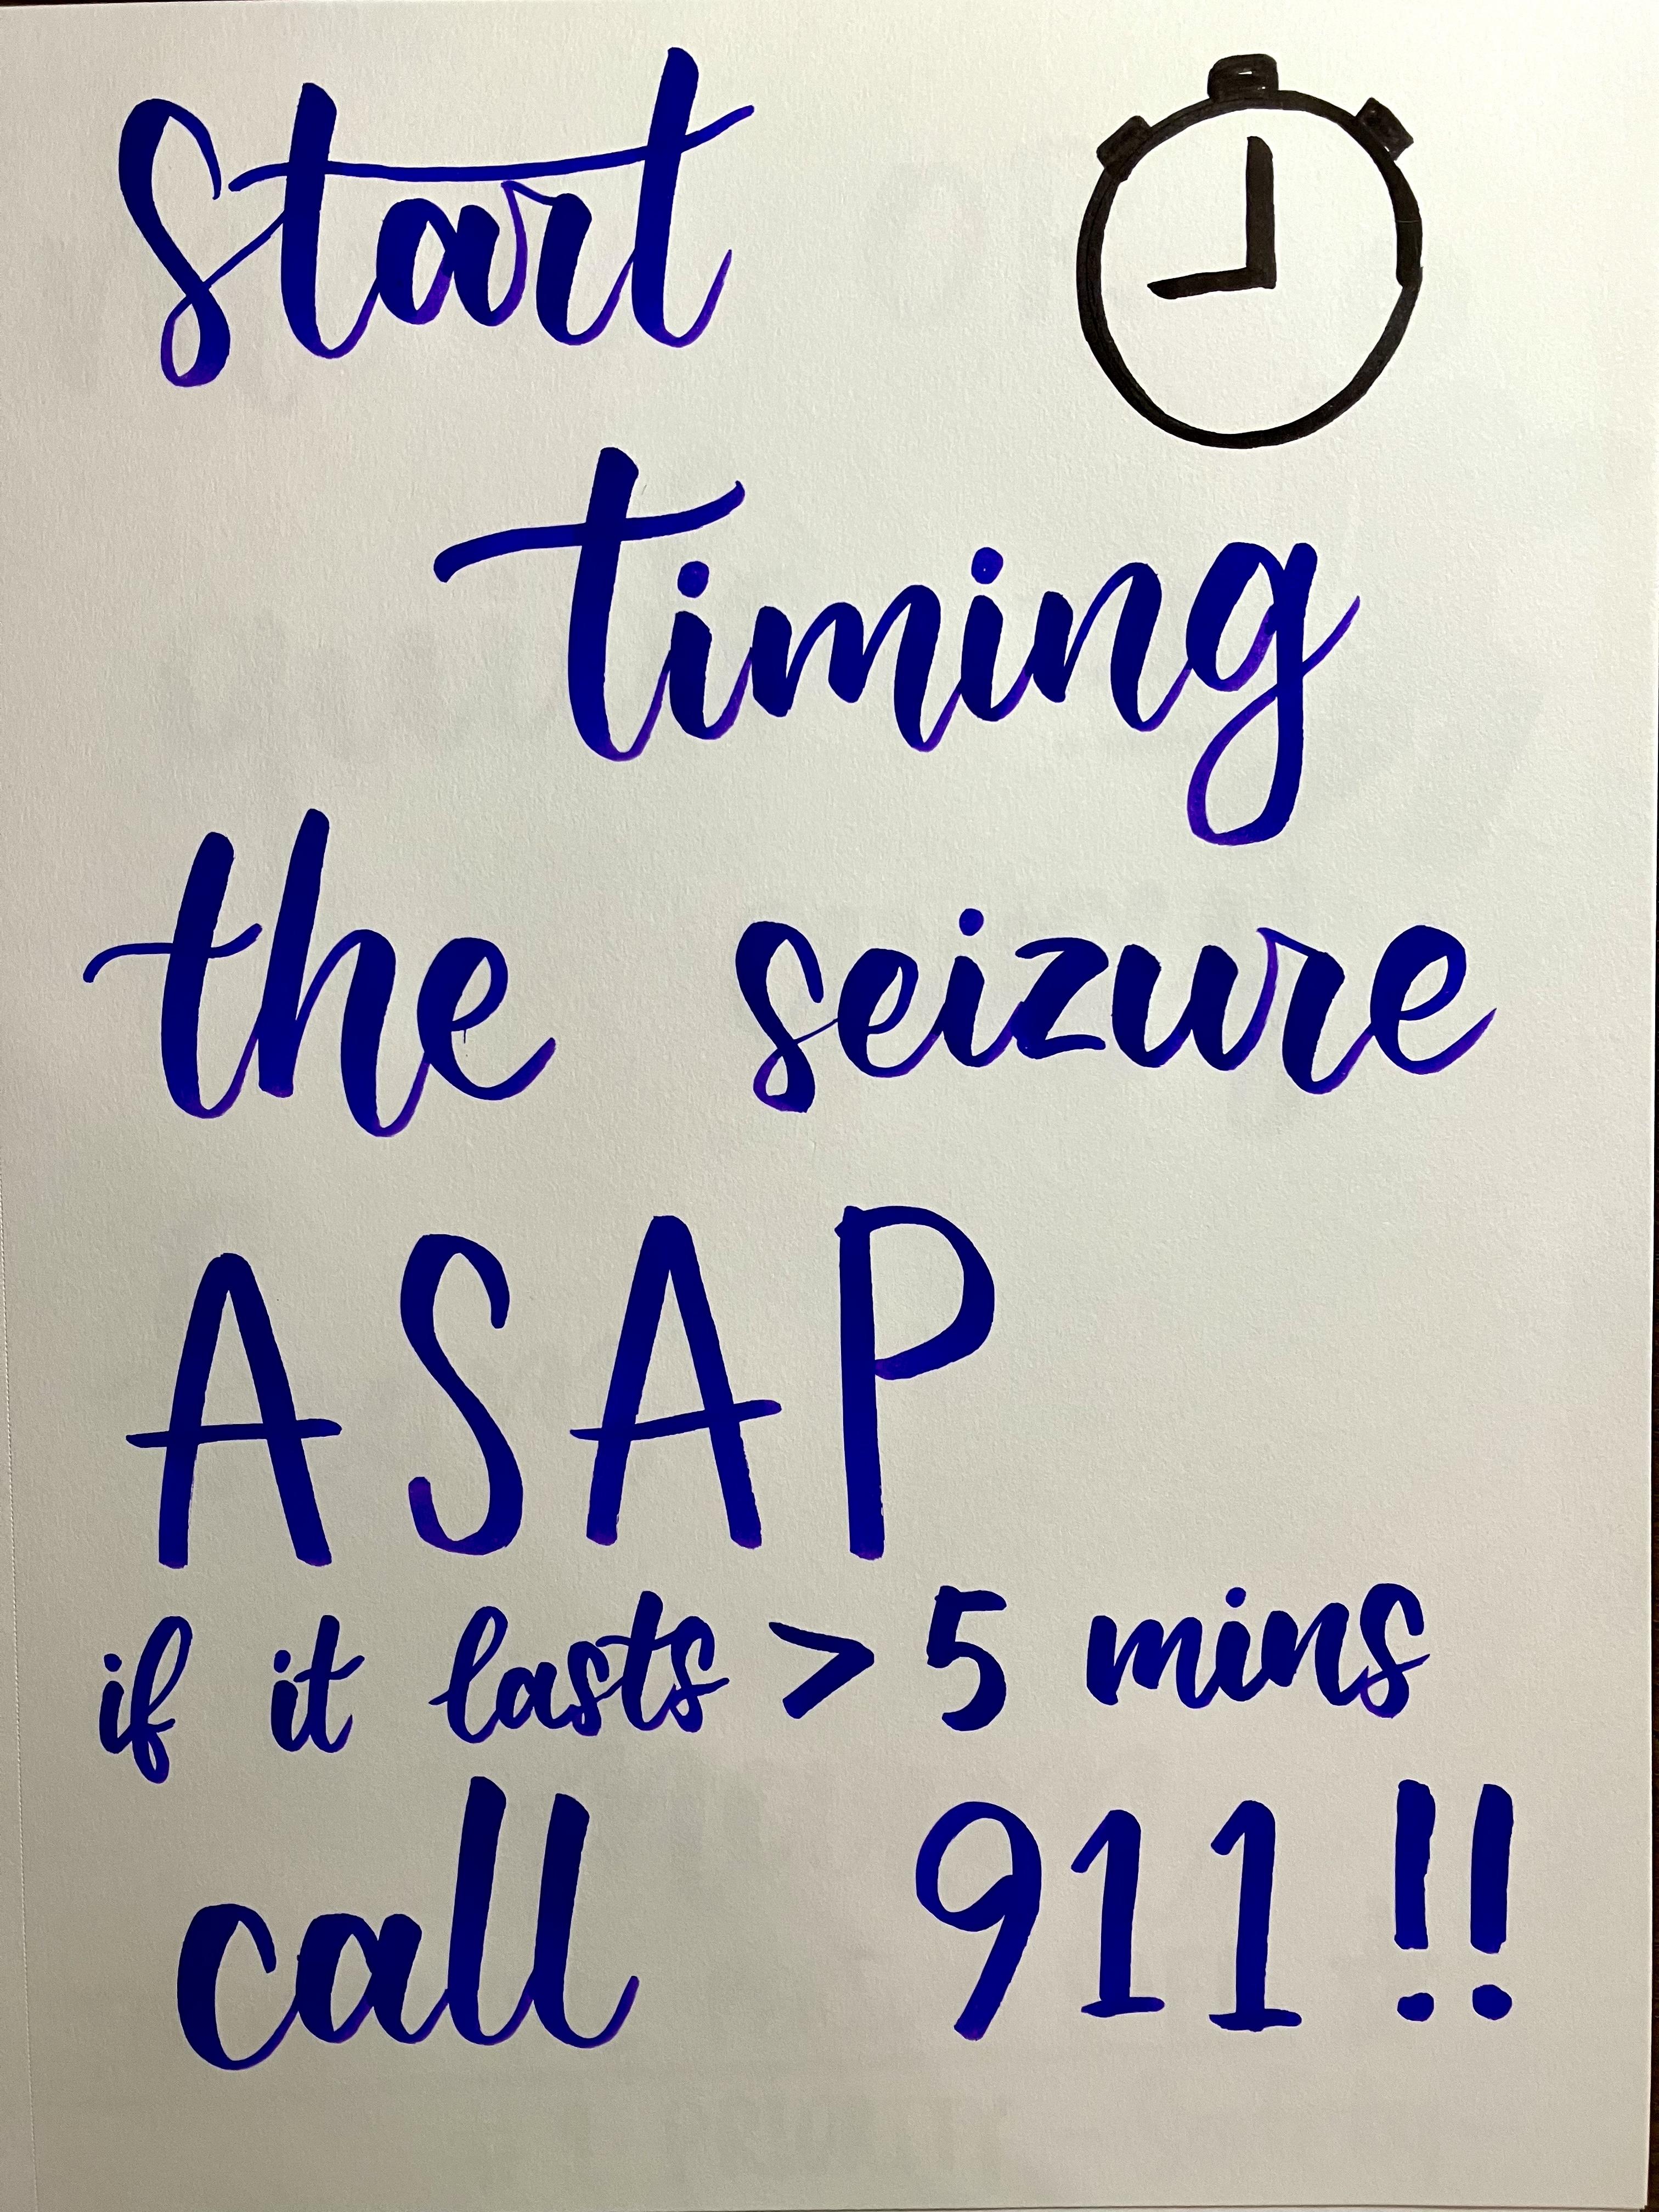 start
timing
the seizure
ASAP
if it lasts > 5 mins
call 911!!